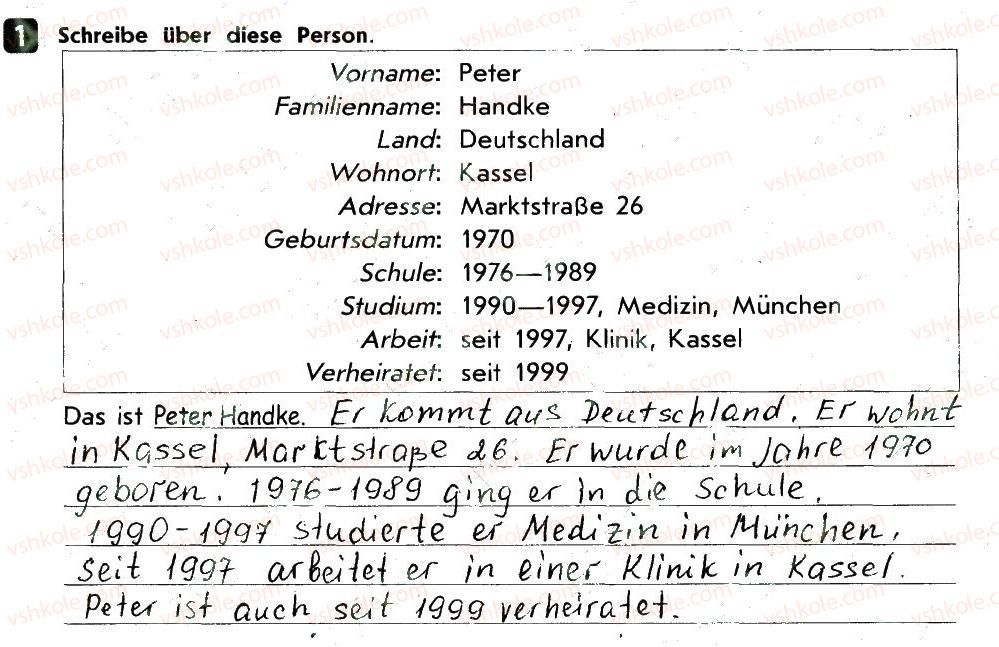 1 Schreibe über diese Person.
Vorname: Peter
Familienname: Handke
Land: Deutschland
Wohnort: Kassel
Adresse: Marktstraße 26
Geburtsdatum: 1970
Schule: 1976—1989
Studium: 1990—1997, Medizin, München
Arbeit: seit 1997, Klinik, Kassel
Verheiratet: seit 1999
Das ist Peter Handke. Er kommt aus Deutschland. Er wohnt
in Kassel, Marktstraße 26. Er wurde im Jahre 1970
geboren. 1976-1989 ging er in die Schule.
1990-1997 studierte er Medizin in München.
Seit 1997 arbeitet er in einer Klinik in Kassel.
Peter ist auch seit 1999 verheiratet.